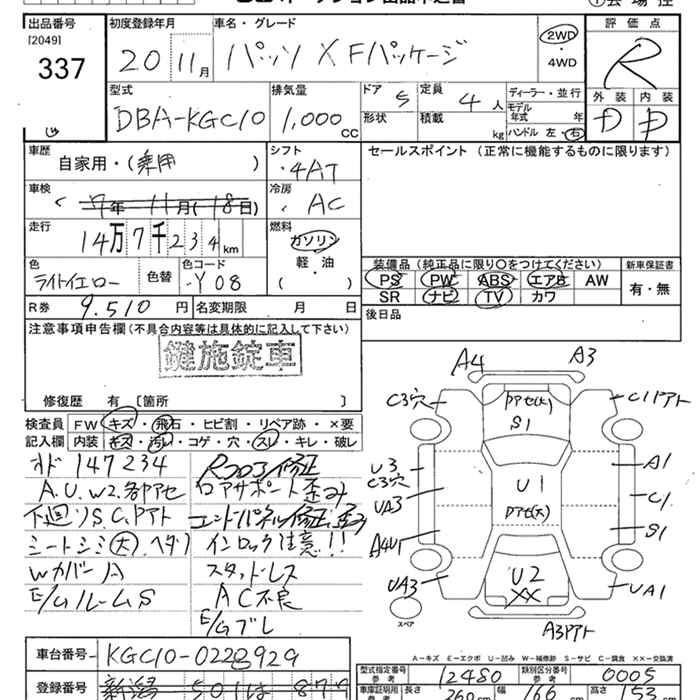 出品番号
[2049]
337
初度登録年月
20 11月
車名・グレード
パッソ X Fパッケージ
2WD
・
4WD
評価点
R
外装 内装
D D
型式
DBA-KGC10
排気量
1,000 CC
ドア 5
形状
定員 4 人
積載 kg
ディーラー・並行
モデル
年式 年
ハンドル 左・右
車歴
自家用・(乗用 )
シフト
4AT
セールスポイント (正常に機能するものに限ります)
車検
7年 11月 (18日)
冷房
AC
走行
14万7千234km
燃料
ガソリン
・
軽・油
( )
色
ライトイエロー
色替
色コード
Y08
装備品 (純正品に限り○をつけてください)
PS PW ABS エアB AW
SR ナビ TV カワ
新車保証書
有・無
R券 9.510 円
名変期限 月 日
後日品
注意事項申告欄(不具合内容等は具体的に記入して下さい)
鍵施錠車
修復歴 有 [箇所 ]
検査員
記入欄
FW キズ・飛石・ヒビ割・リペア跡・×要
内装 キズ・汚レ・コゲ・穴・スレ・キレ・破レ
オド 147234
A.U.W2.各部アセ
下廻りS.C.Pアト
シートシミ(大).ヘタリ
Wカバー A
E/GルームS
Rフロア修正
ロアサポート歪み
エンドパネル修正,歪み
インロック注意!!
スタッドレス
AC不良
E/Gブレ
A4
A3
C3穴
Pアセ(大)
S1
C1Pアト
U3
C3穴
UA3
A4U1
UA3
U1
Pアセ(大)
A1
C1
S1
UA1
U2
XX
A3Pアト
スペア
車台番号 KGC10-0228929
登録番号 新潟 501 は 879
A-キズ E-エクボ U-凹み W-補修跡 S-サビ C-腐食 XX-交換済
型式指定番号
参考
12480
類別区分番号
参考
0005
車庫証明用
長さ 360cm 幅 166cm 高さ 153cm